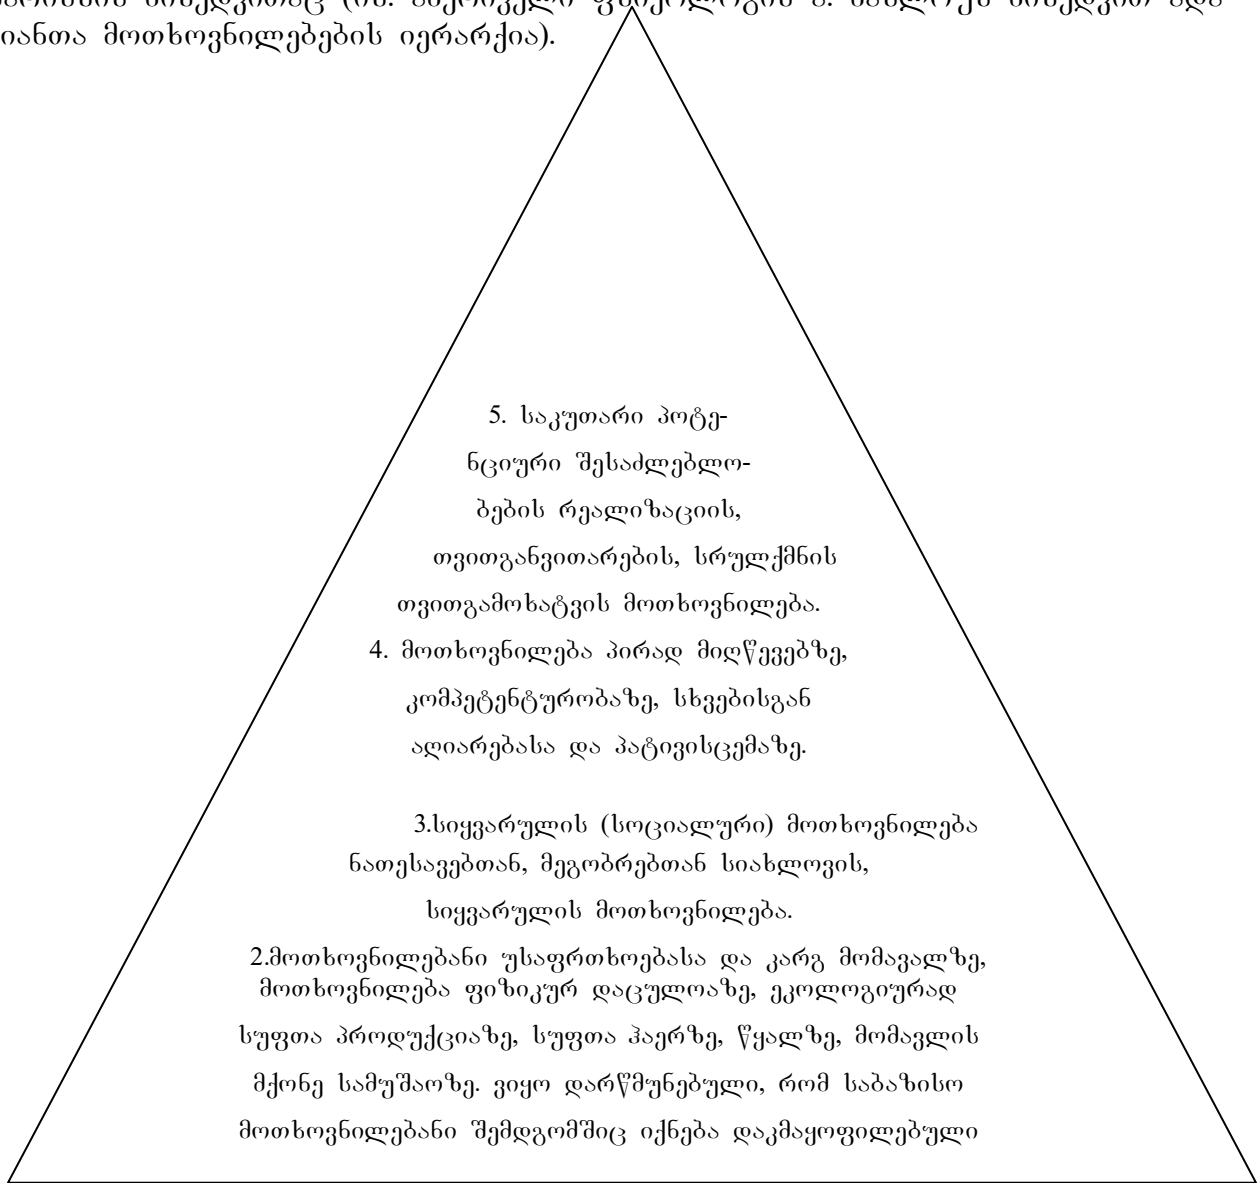 იანთა მოთხოვნილებების იერარქია).
5. საკუთარი პოტე-
ნციური შესაძლებლო-
ბების რეალიზაციის,
თვითგანვითარების, სრულქმნის
თვითგამოხატვის მოთხოვნილება.
4. მოთხოვნილება პირად მიღწევებზე,
კომპეტენტურობაზე, სხვებისგან
აღიარებასა და პატივისცემაზე.
3.სიყვარულის (სოციალური) მოთხოვნილება
ნათესავებთან, მეგობრებთან სიახლოვის,
სიყვარულის მოთხოვნილება.
2.მოთხოვნილებანი უსაფრთხოებასა და კარგ მომავალზე,
მოთხოვნილება ფიზიკურ დაცულოაზე, ეკოლოგიურად
სუფთა პროდუქციაზე, სუფთა ჰაერზე, წყალზე, მომავლის
მქონე სამუშაოზე. ვიყო დარწმუნებული, რომ საბაზისო
მოთხოვნილებანი შემდგომშიც იქნება დაკმაყოფილებული